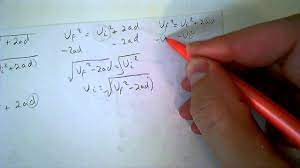 + 2ad
+ 2ad)
+ 2ad)
Vf² = Vi² + 2ad
-2ad - 2ad
√Vf² - 2ad = √Vi²
Vi = √(Vf² - 2ad)
Vf² = Vi² + 2ad
-Vi² -Vi²